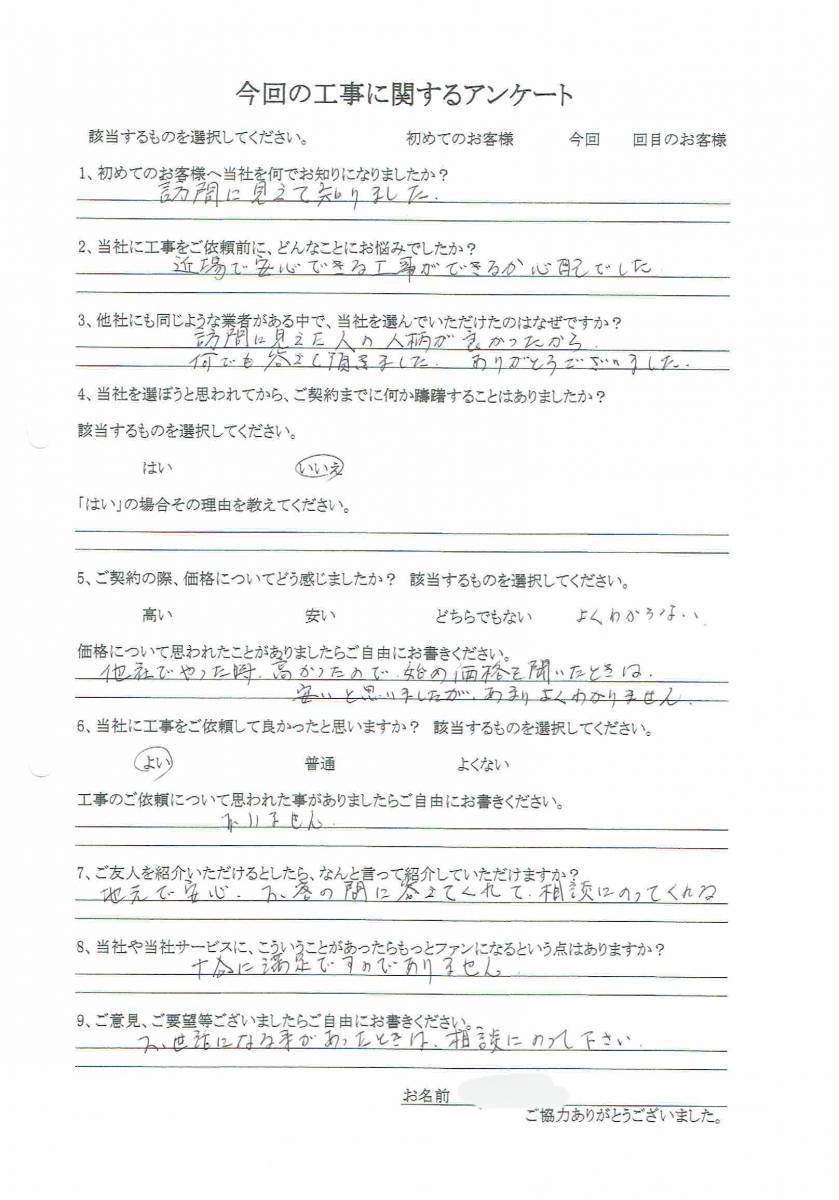 今回の工事に関するアンケート
該当するものを選択してください。 初めてのお客様 今回 回目のお客様
1、初めてのお客様へ当社を何でお知りになりましたか？
訪問に見えて知りました.
2、当社に工事をご依頼前に、どんなことにお悩みでしたか？
近場で安心できる工事ができるか心配でした
3、他社にも同じような業者がある中で、当社を選んでいただけたのはなぜですか？
訪問に見えた人の人柄が良かったから
何でも答えて頂きました. ありがとうございました.
4、当社を選ぼうと思われてから、ご契約までに何か躊躇することはありましたか？
該当するものを選択してください。
はい いいえ
「はい」の場合その理由を教えてください。
5、ご契約の際、価格についてどう感じましたか？ 該当するものを選択してください。
高い 安い どちらでもない よくわからない
価格について思われたことがありましたらご自由にお書きください。
他社でやった時、高かったので、始の価格を聞いたときは、
安いと思いましたが、あまりよくわかりません
6、当社に工事をご依頼して良かったと思いますか？ 該当するものを選択してください。
よい 普通 よくない
工事のご依頼について思われた事がありましたらご自由にお書きください。
7、ご友人を紹介いただけるとしたら、なんと言って紹介していただけますか？
地元で安心. の問に答えてくれて、相談にのってくれる
8、当社や当社サービスに、こういうことがあったらもっとファンになるという点はありますか？
十分に満足ですのでありません
9、ご意見、ご要望等ございましたらご自由にお書きください。
お世話になる事があったときは、相談にのって下さい.
お名前
ご協力ありがとうございました。